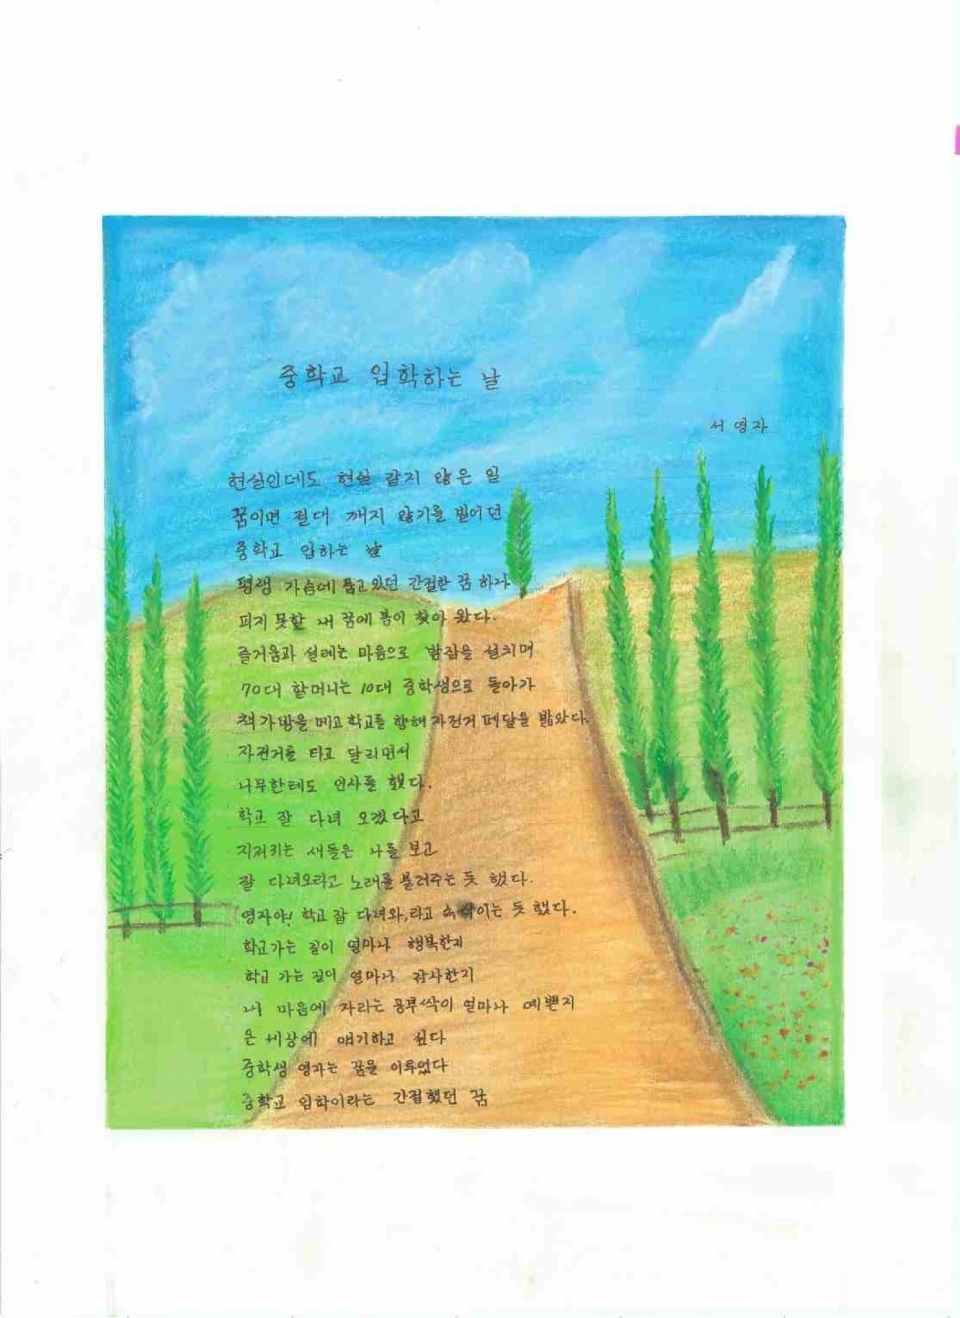 중학교 입학하는 날
서영자
현실인데도 현실 같지 않은 일
꿈이면 절대 깨지 않기를 빌어던
중학교 입하는 날
평생 가슴에 품고 있던 간절한 꿈 하나
피지 못할 내 꿈에 봄이 찾아 왔다.
즐거움과 설레는 마음으로 밤잠을 설치며
70대 할머니는 10대 중학생으로 돌아가
책가방을 메고 학교를 향해 자전거 페달을 밟았다.
자전거를 타고 달리면서
나무한테도 인사를 했다.
학교 잘 다녀 오겠다고
지저귀는 새들은 나를 보고
잘 다녀오라고 노래를 불러주는 듯 했다.
영자야! 학교 잘 다녀와, 라고 속삭이는 듯 했다.
학교가는 길이 얼마나 행복한지
학교 가는 길이 얼마나 감사한지
내 마음에 자라는 공부싹이 얼마나 예쁜지
온 세상에 얘기하고 싶다
중학생 영자는 꿈을 이루었다
중학교 입학이라는 간절했던 꿈